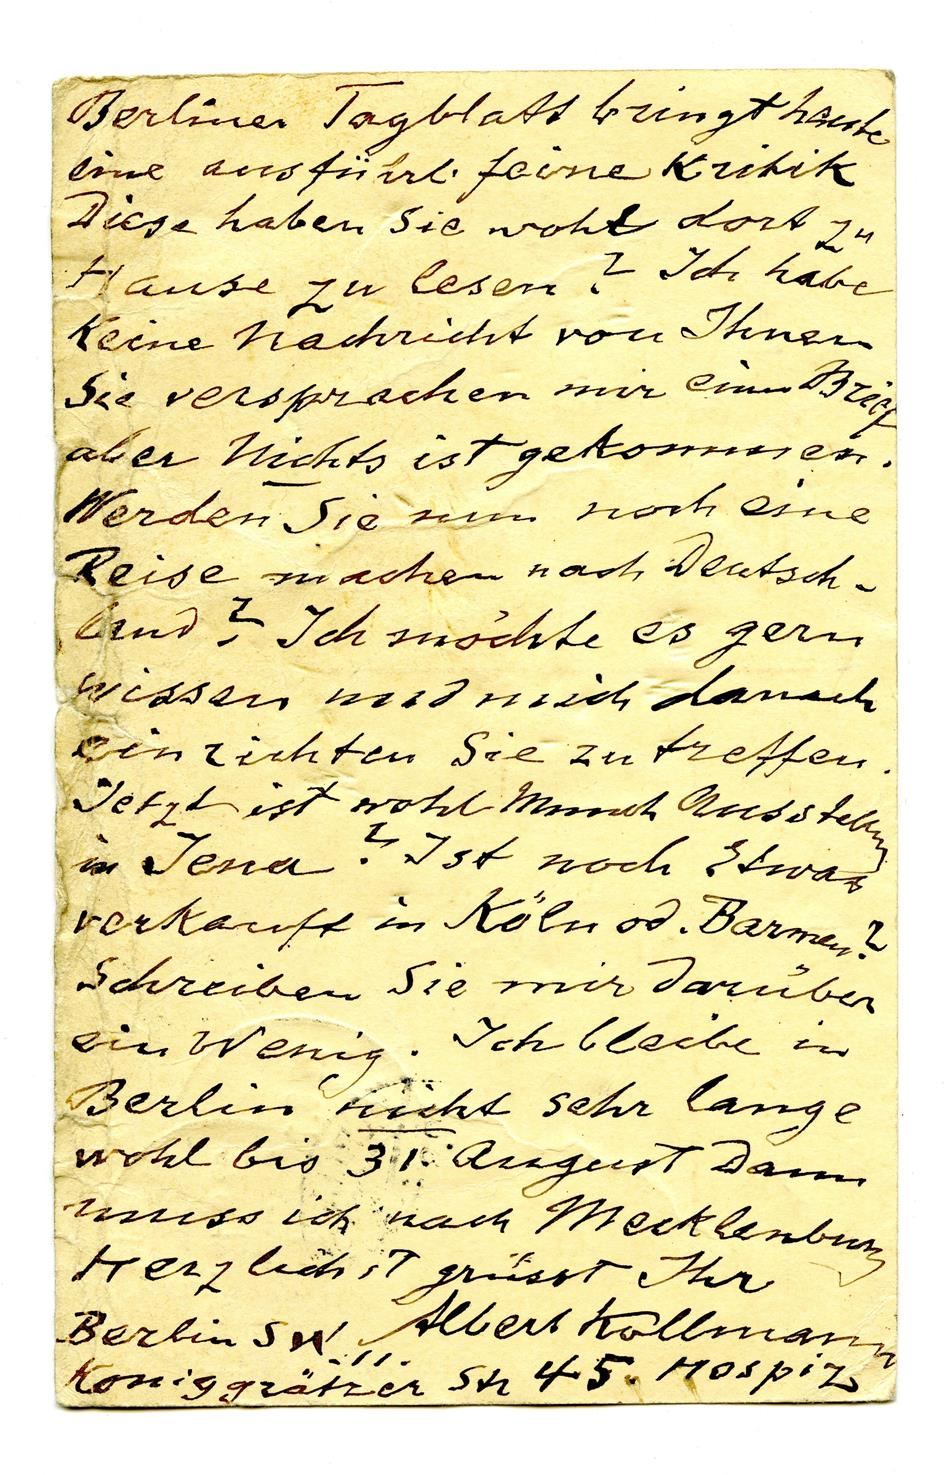 Berliner Tagblatt bringt heute
eine ausführl. feine Kritik
Diese haben Sie wohl dort zu
Hause zu lesen? Ich habe
Keine Nachricht von Ihnen
Sie versprachen mir einen Brief
aber Nichts ist gekommen.
Werden Sie nun noch eine
Reise machen nach Deutsch-
land? Ich möchte es gern
wissen und mich danach
einrichten Sie zu treffen.
Jetzt ist wohl Munch Ausstellung
in Jena? Ist noch Etwas
verkauft in Köln od. Barmen?
Schreiben Sie mir darüber
ein Wenig. Ich bleibe in
Berlin nicht sehr lange
wohl bis 31. August Dann
muss ich nach Mecklenburg
Herzlichst grüsst Ihr
Albert Kollmann
Berlin SW
Königgrätzer Str 45. Hospiz